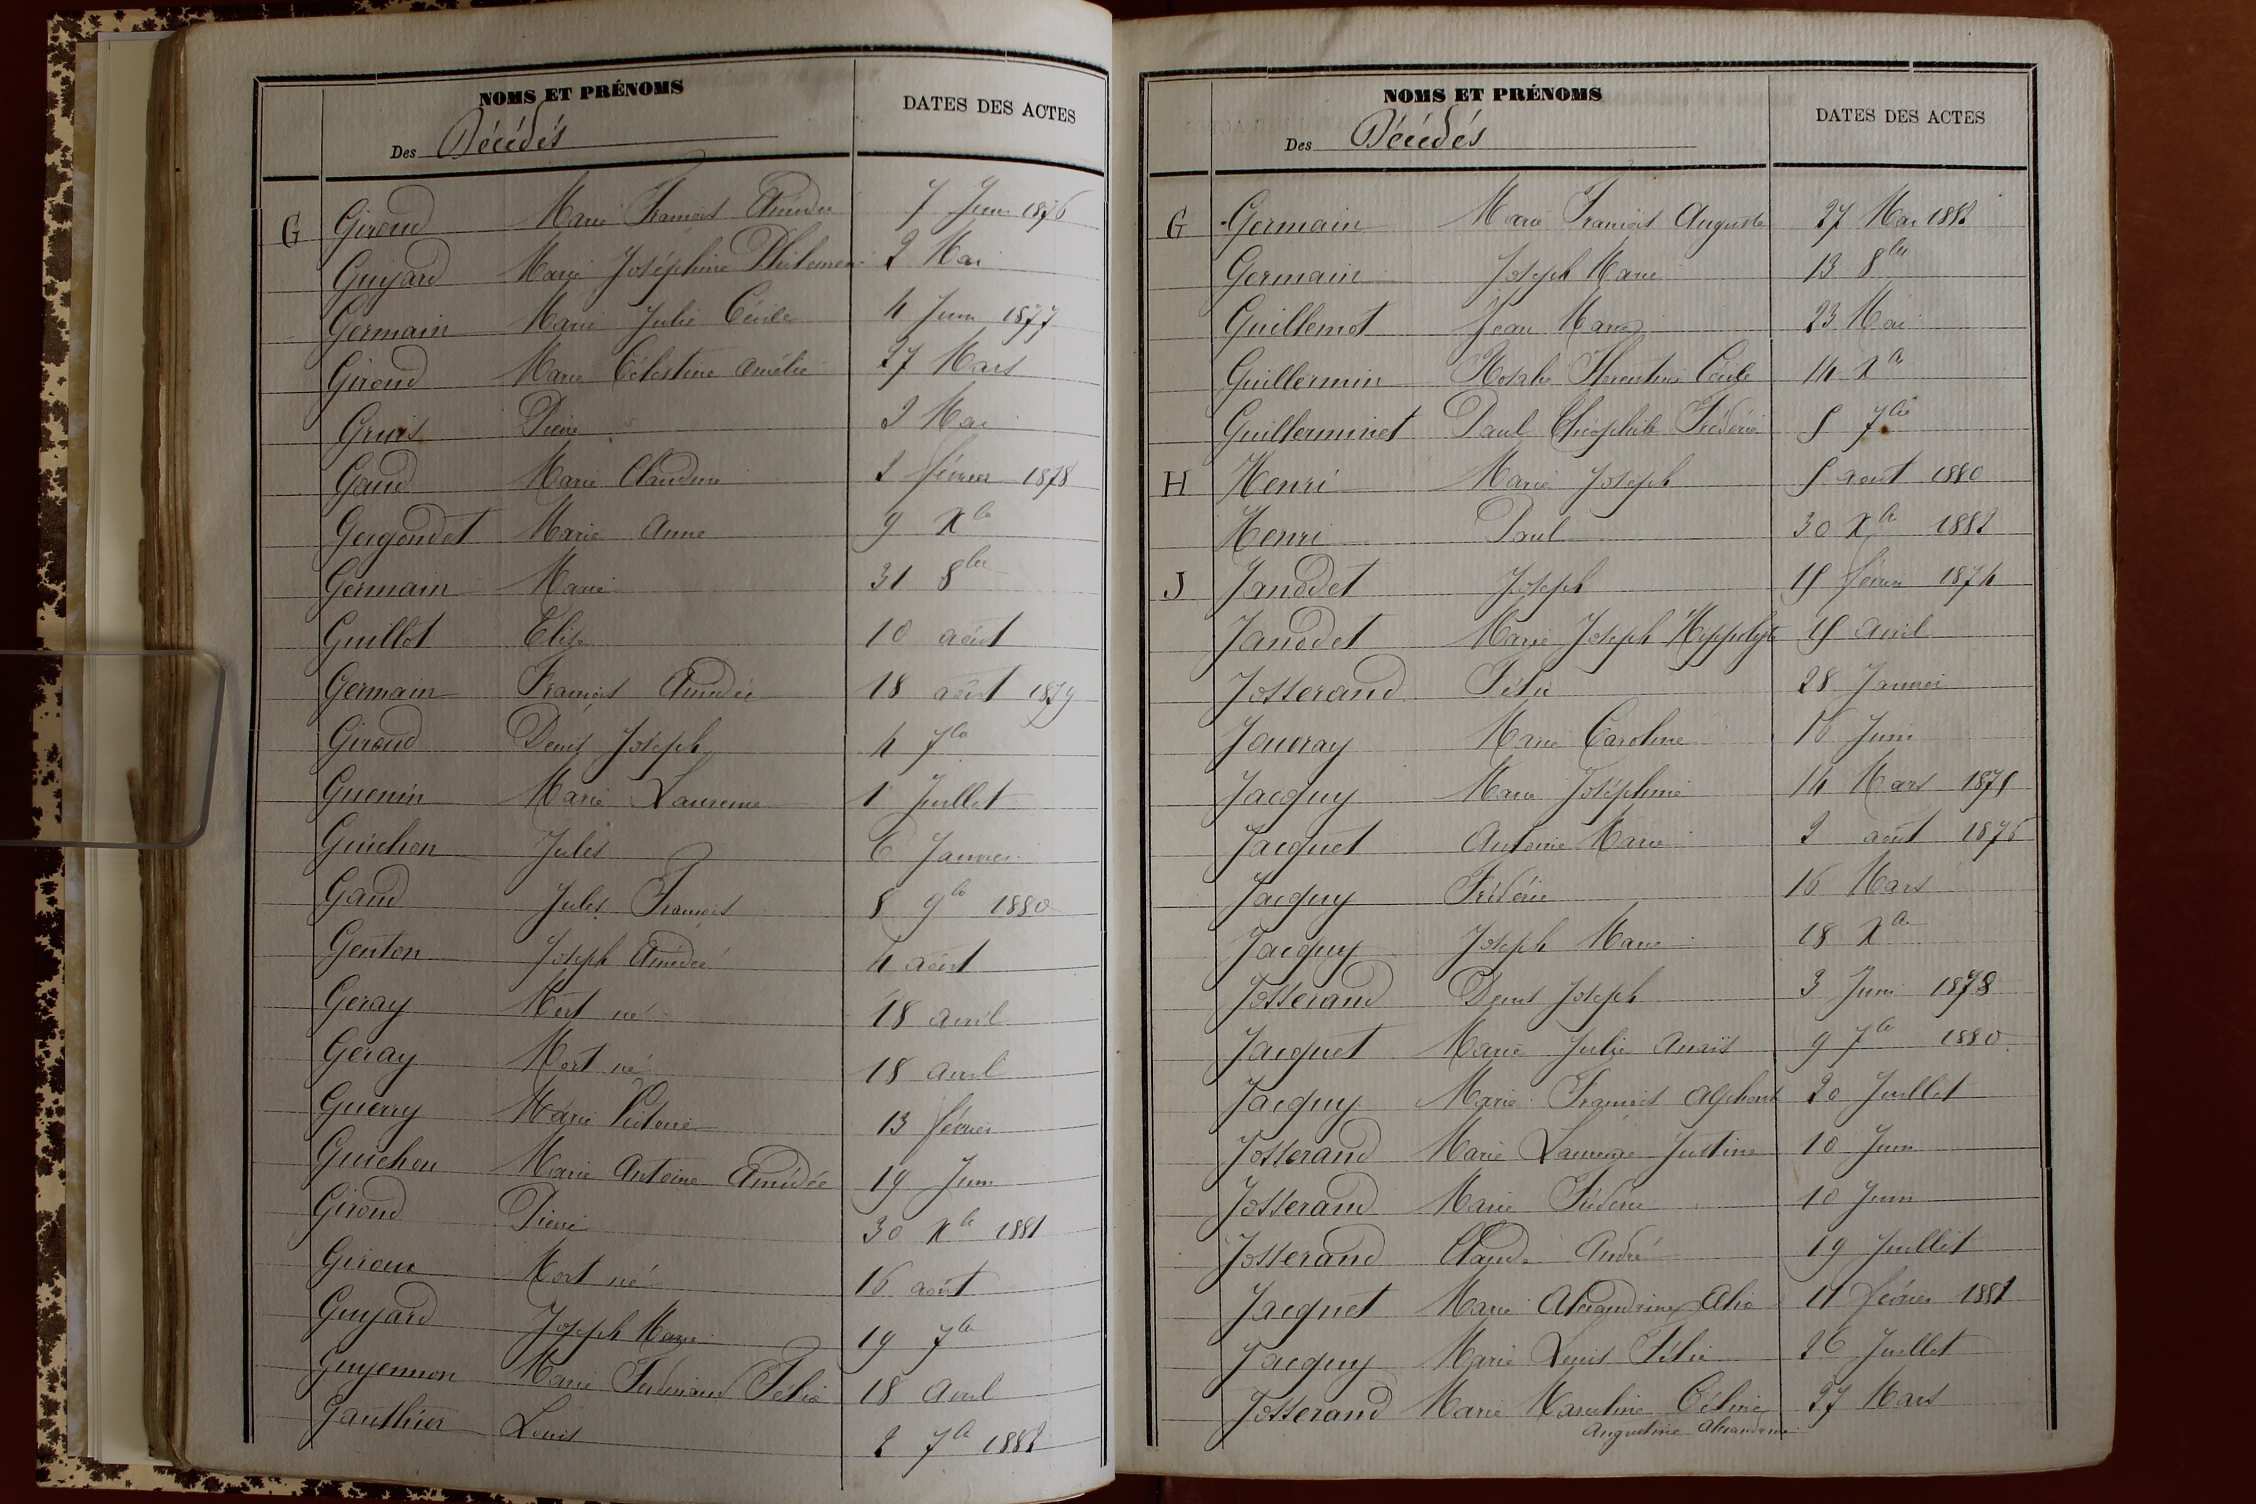 NOMS ET PRÉNOMS
Des Décédés
DATES DES ACTES
G Giroud Marie François Amédée 7 Juin 1876
Guyard Marie Joséphine Philomen 2 Mai
Germain Marie Julie Cécile 4 Juin 1877
Giroud Marie Célestine Amélie 27 Mars
Gruis Pierre 2 Mai
Gaud Marie Claudine 2 février 1878
Gergondet Marie Anne 9 Xbr
Germain Marie 31 8bre
Guillot Elise 10 août
Germain François Amédée 18 août 1879
Giroud Denis Joseph 4 7br
Guenin Marie Laurence 1 Juillet
Guichon Jules 6 Janvier
Gaud Jules François 8 9br 1880
Genton Joseph Amédée 4 août
Geray Mort né 18 avril
Geray Mort né 18 avril
Guerry Marie Victorie 13 février
Guichon Marie Antoine Amédée 19 Juin
Giroud Pierre 30 Xbr 1881
Giroud Mort né 16 août
Guyard Joseph Marie 19 7br
Guyennon Marie Ferdinand Félix 18 avril
Gauthier Louis 2 7br 1882
NOMS ET PRÉNOMS
Des Décédés
DATES DES ACTES
G Germain Marie François Auguste 27 Mai 1882
Germain Joseph Marie 13 8bre
Guillemot Jean Marie 23 Mai
Guillermin Florentine Cécile 14 Xbr
Guillerminet Paul Théophile Frédéric 5 7bre
H Henri Marie Joseph 5 août 1880
Henri Paul 30 Xbr 1882
J Janodet Joseph 15 février 1874
Janodet Marie Joseph Hippolyte 15 avril
Josserand Félix 28 Janvier
Joueray Marie Caroline 16 Juin
Jacquy Marie Joséphine 14 Mars 1875
Jacquet Antoine Marie 2 août 1876
Jacquy Frédéric 16 Mars
Jacquy Joseph Marie 18 Xbr
Josserand Denis Joseph 3 Juin 1878
Jacquet Marie Julie Anaïs 9 7br 1880
Jacquy Marie François Alphonse 20 Juillet
Josserand Marie Laurence Justine 10 Juin
Josserand Marie Frédéric 10 Juin
Josserand Claude André 19 Juillet
Jacquet Marie Alexandrine Elie 11 février 1881
Jacquy Marie Louis Félix 26 Juillet
Josserand Marie Marceline Céline 27 Mars
Augustine Alexandrine